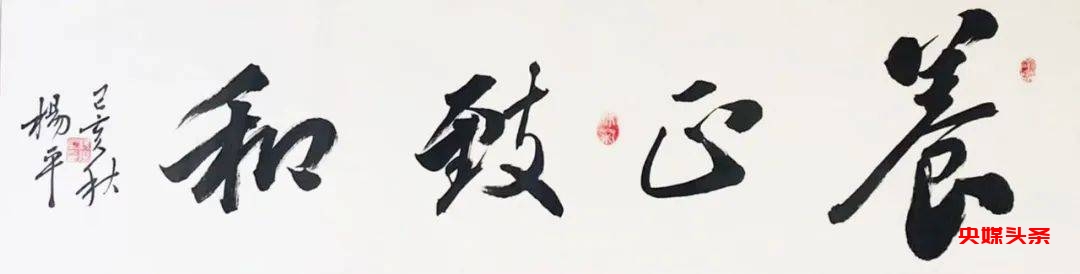 養正致和
己亥秋
楊平
央媒头条